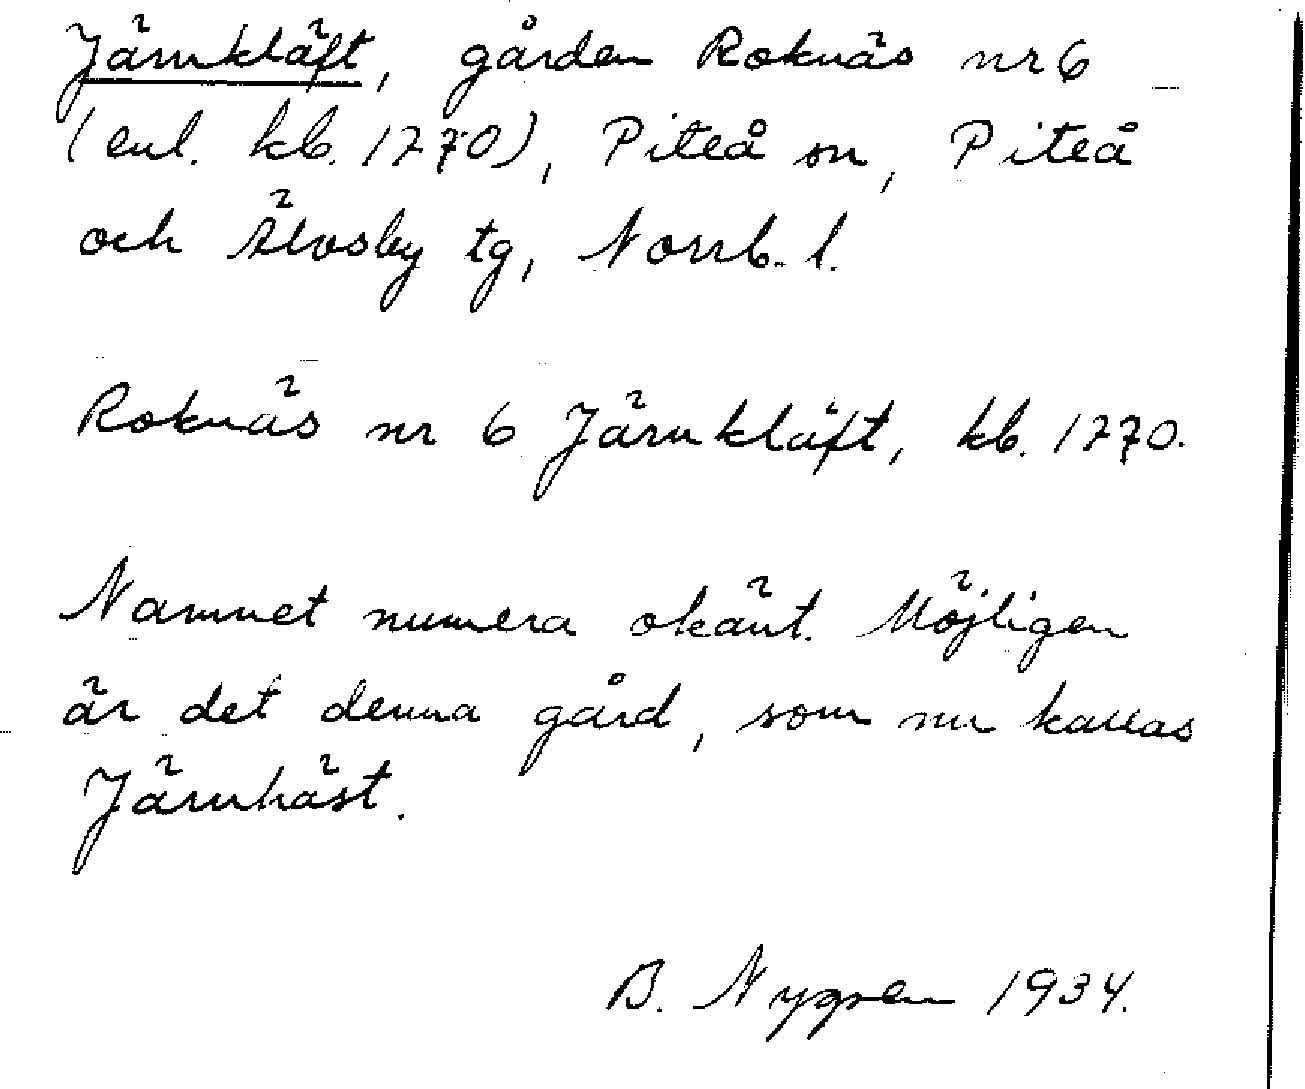 Järnkläft, gården Roknäs nr 6
(enl. kb. 1770), Piteå sn, Piteå
och Älvsby tg, Norrb. l.
Roknäs nr 6 Järnkläft, kb. 1770.
Namnet numera okänt. Möjligen
är det denna gård, som nu kallas
Järnhäst.
B. Nygren 1934.